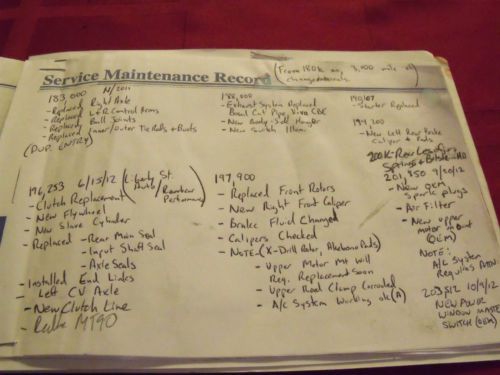 Service Maintenance Record
(From 180K on, 3,000 mile oil
change intervals)
183,000 11/2011
- Replaced Right Axle
- Replaced L&R Control Arms
- Replaced Ball Joints
- Replaced Inner/Outer Tie Rods + Boots
(DUP. ENTRY)
188,000
- Exhaust System Replaced
Bowl Cat Pipe Vibe CBE
- New Body-Side Hanger
- New Switch Illum.
190,107
- Starter Replaced
194,200
- New Left Rear Brake
Caliper + Pads
200K - Rear
Springs +
196,253 6/15/12 (Liberty St.
- Clutch Replacement
Performance)
- New Flywheel
- New Slave Cylinder
- Replaced - Rear Main Seal
- Input Shaft Seal
- Axle Seals
- Installed End Links
Left CV Axle
- New Clutch Line
- MT90
197,900
- Replaced Front Rotors
- New Right Front Caliper
- Brake Fluid Changed
- Calipers Checked
- NOTE - (X-Drill Rotor, Akebono Pads)
- Upper Motor Mt Will
Req. Replacement Soon
- Upper Road Clamp Corroded
- A/C System Working ok (A)
201,350 9/20/12
- New OEM
Spark Plugs
- Air Filter
- New Upper
Motor Mount
(OEM)
NOTE:
A/C System
Requires Attn
203,512 10/9/12
NEW PWR
WINDOW MASTER
SWITCH (OEM)